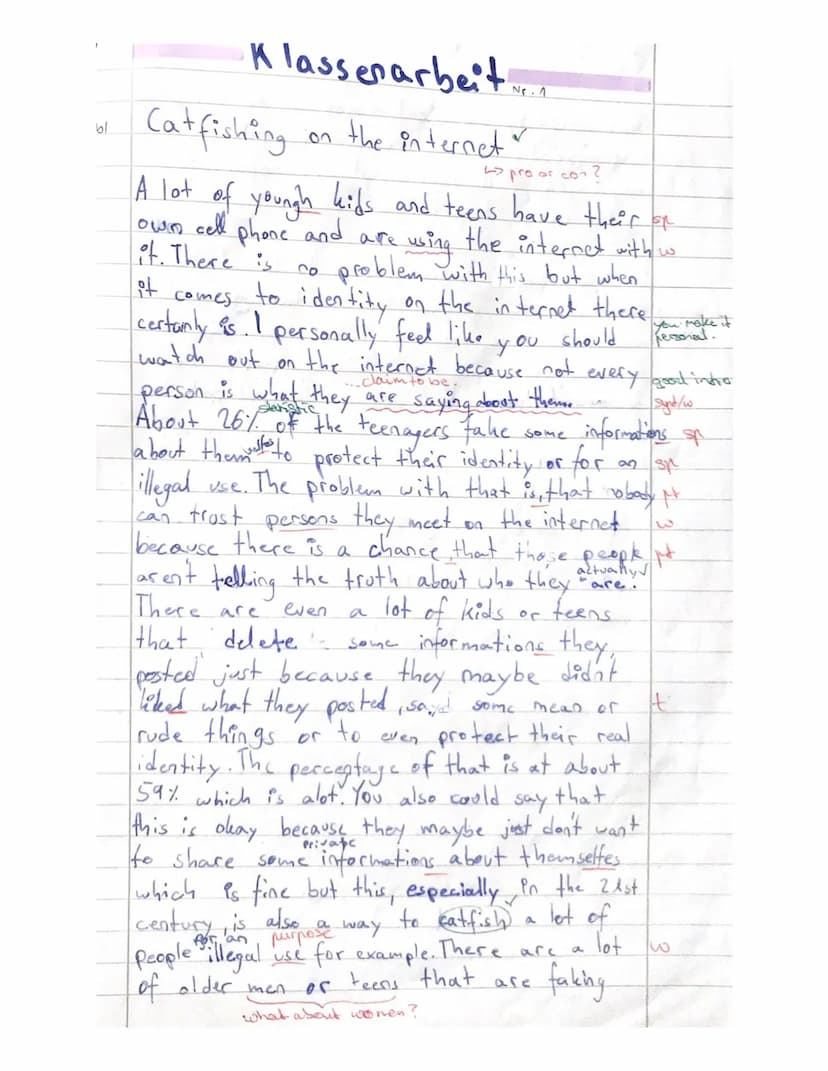 Klassenarbeit Nr. 1
b) Catfishing on the internet ✓
↳ pro or con?
A lot of youngh kids and teens have their sp
own cell phone and are using the internet with w
it. There is no problem with this but when
it comes to identity on the internet there
certainly is. I personally feel like you should you make it personal.
watch out on the internet because not every good intro
claim to be.
person is what they are saying about them. synt/w
statistic
About 26% of the teenagers fake some informations sp
about themselfes to protect their identity or for an sp
illegal use. The problem with that is, that nobody pt
can trust persons they meet on the internet w
because there is a chance, that those people pt
actually √
aren't telling the truth about who they are.
There are even a lot of kids or teens
that delete some informations they
posted just because they maybe didn't
liked what they posted, sayd some mean or t
rude things or to even protect their real
identity. The percentage of that is at about
59% which is alot. You also could say that
this is okay because they maybe just don't want
private
to share some informations about themselfes
which is fine but this, especially in the 21st
century, is also a way to catfish a lot of
for an purpose
people illegal use for example. There are a lot w
of older men or teens that are faking
what about women?